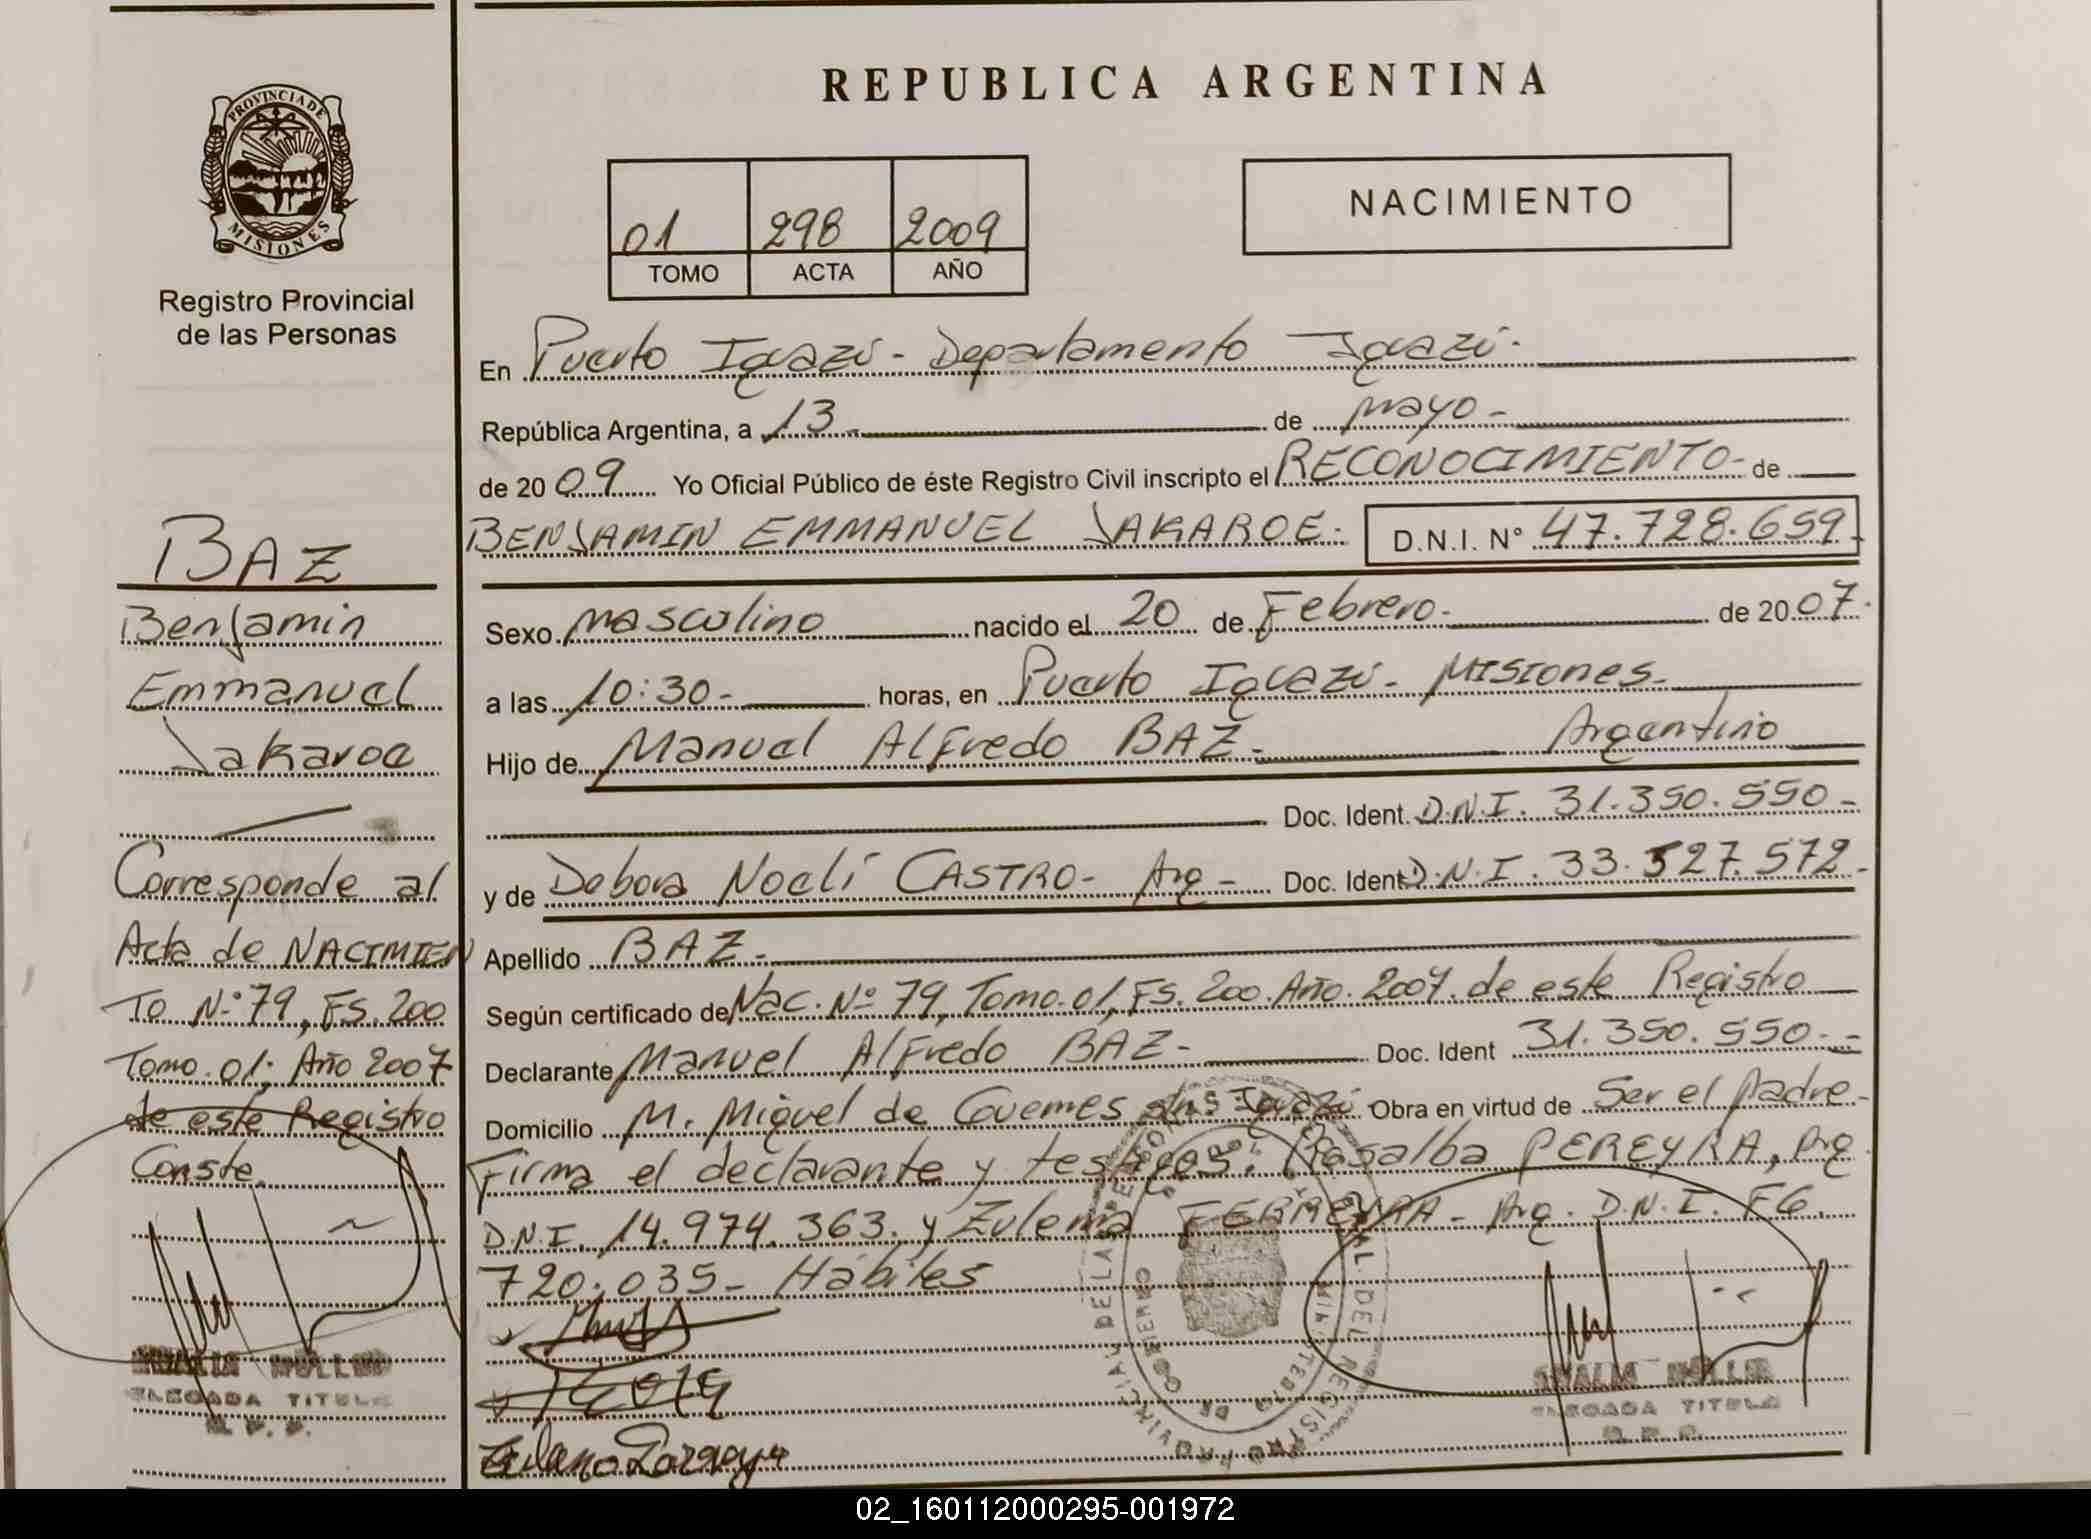 REPUBLICA ARGENTINA
PROVINCIA DE
MISIONES
Registro Provincial
de las Personas
01 298 2009
TOMO ACTA AÑO
NACIMIENTO
En Puerto Iguazú - Departamento Iguazú.
República Argentina, a 13 de mayo -
de 2009 Yo Oficial Público de éste Registro Civil inscripto el RECONOCIMIENTO - de
BENJAMIN EMMANUEL JAKAROE. D.N.I. N° 47.728.659
Sexo masculino nacido el 20 de Febrero. de 2007.
a las 10:30 - horas, en Puerto Iguazú - Misiones.
Hijo de Manuel Alfredo BAZ - Argentino
Doc. Ident. D.N.I. 31.350.550 -
y de Debora Noelí CASTRO - Arg - Doc. Ident D.N.I. 33.527.572 -
Apellido BAZ -
Según certificado de Nac. Nº 79, Tomo 01, Fs. 200. Año. 2007. de este Registro
Declarante Manuel Alfredo BAZ - Doc. Ident 31.350.550 -
Domicilio M. Miguel de Guemes s/n Iguazú Obra en virtud de Ser el padre -
Firma el declarante y testigos: Rosalba PEREYRA, Arg
D.N.I. 14.974.363. y Zulema FERREYRA - Arg. D.N.I. F6.
720.035 - Hábiles
BAZ
Benjamin
Emmanuel
Jakaroe
Corresponde al
Acta de NACIMIEN
TO Nº 79, Fs. 200
Tomo. 01; Año 2007
de este Registro
Conste.
TITULAR
TITULAR
02_160112000295-001972